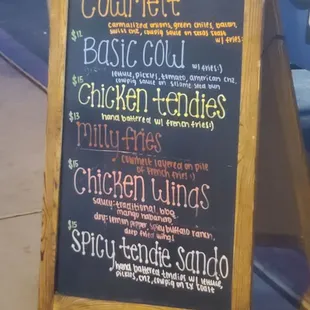 Cowmelt
caramalized onions, green chiles, bacon,
swiss chz, cowpig sauce on texas toast
w/ fries
$12
Basic Cow w/ fries:)
lettuce, pickles, tomato, american chz,
cowpig sauce on sesame seed bun
$15
Chicken tendies
hand battered w/ french fries:)
$13
Milly fries
cowmeat layered on pile
of french fries :)
$15
Chicken Wings
saucy: traditional, bbq,
mango habanero
dry: lemon pepper, spicy buffalo ranch,
deep fried wing!
$15
Spicy tendie Sando
hand battered tendies w/ lettuce,
pickles, chz, cowpig on tx toast